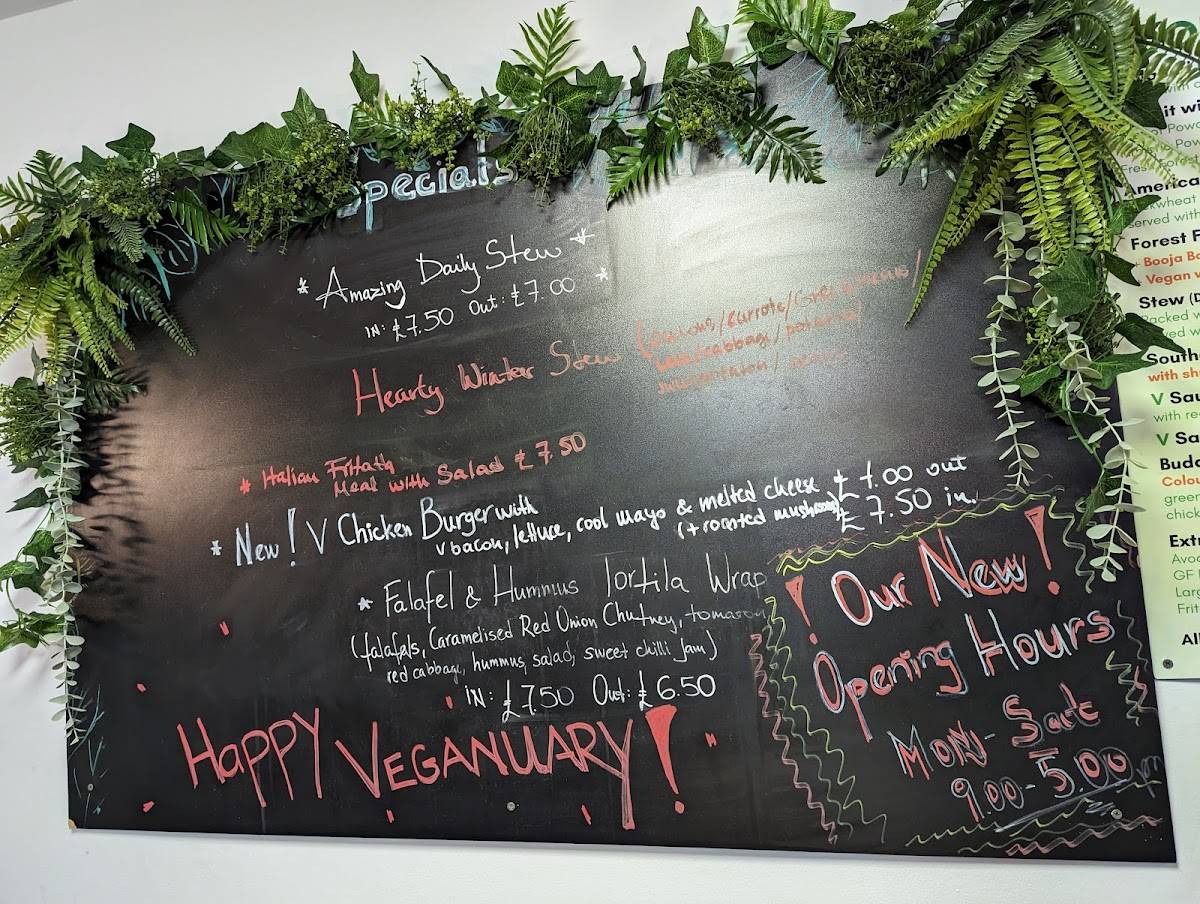 Specials
* Amazing Daily Stew *
IN: £7.50 Out: £7.00 *
Hearty Winter Stew (onions/carrots/
cabbage/
* Italian Frittata
Meal with Salad £7.50
* New! V Chicken Burger with
V bacon, lettuce, cool mayo & melted cheese £7.00 out
(+ roasted mushroom) £7.50 in.
* Falafel & Hummus Tortila Wrap
(falafels, Caramelised Red Union Chutney, tomatoes
red cabbage, hummus, salad, sweet chilli jam)
IN: £7.50 Out: £6.50
HAPPY VEGANUARY!
! Our New !
Opening Hours
MON - Sat
9.00 - 5.00 pm
it wi
America
served with
Forest F
Booja Bo
Vegan
Stew (D
South
with sh
V Sau
with re
V Sa
Budd
Colou
green
chick
Extr
Avoc
GF
Larg
Frit
All